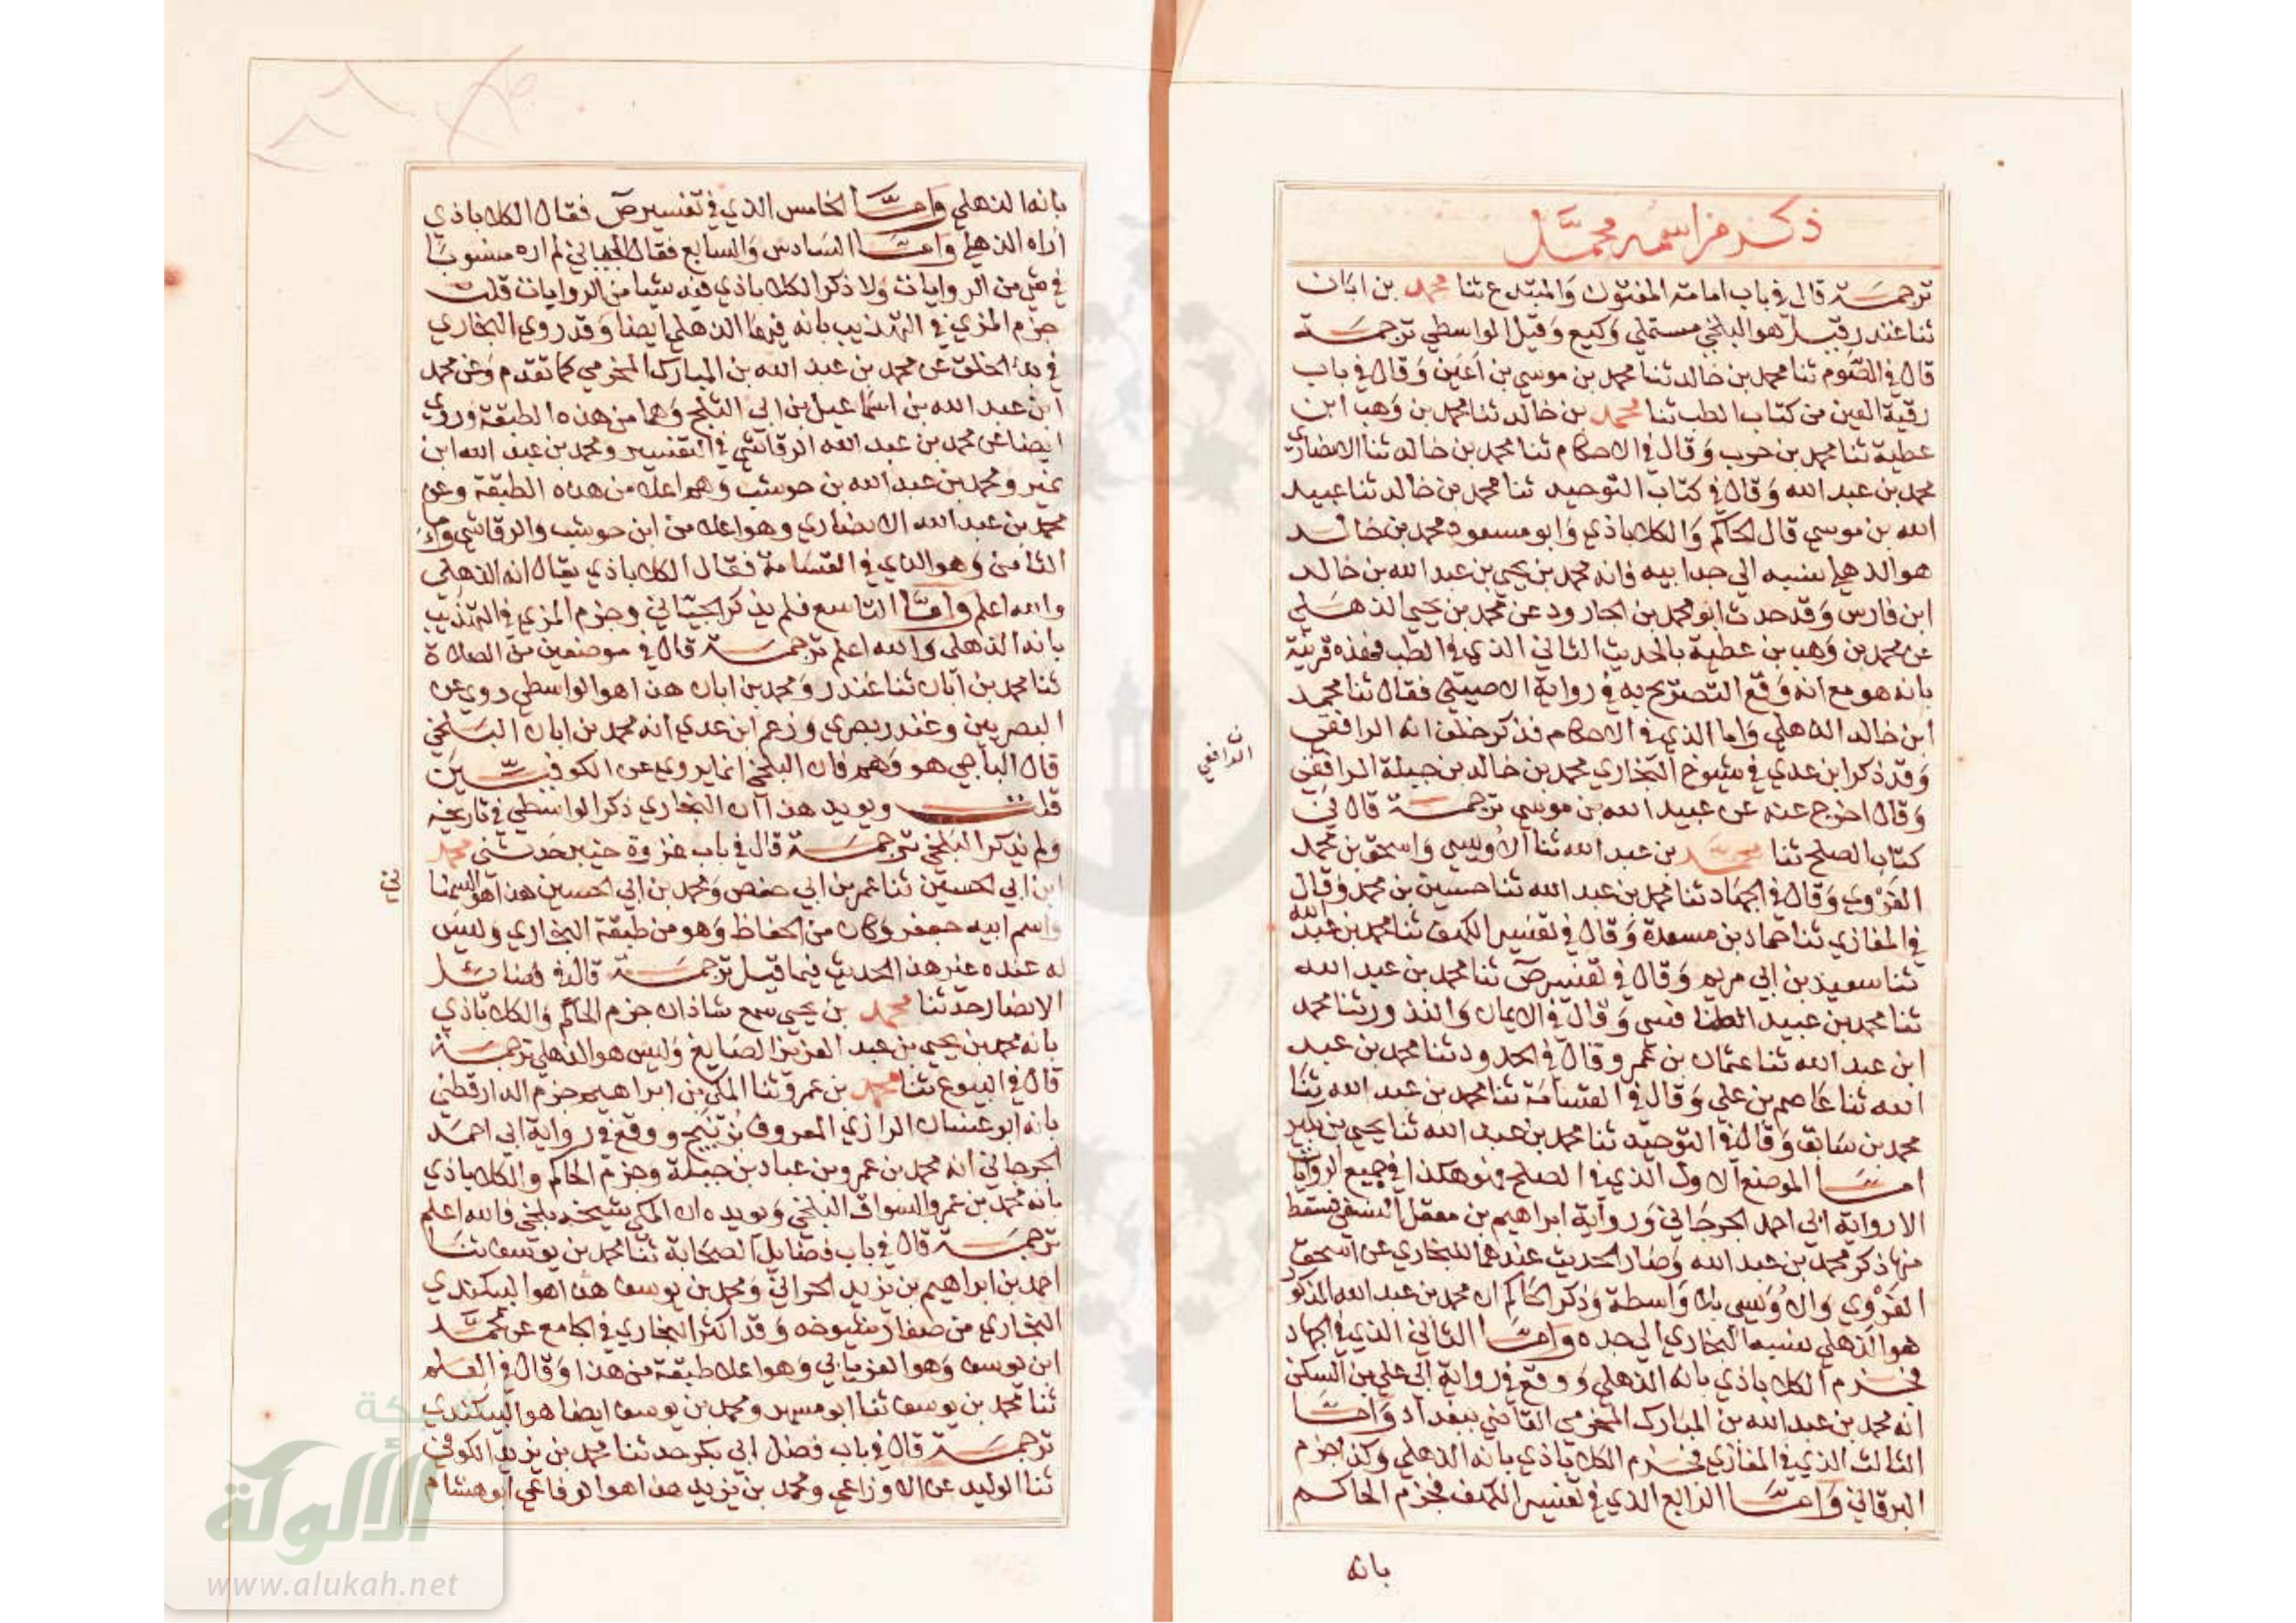 ذكر من اسمه محمد
ترجمة قال في باب امامة المفتون والمبتدع ثنا محمد بن ابان
ثنا غندر قيل هو البلخي مستملي وكيع وقيل الواسطي ترجمة
قال في الصوم ثنا محمد بن خالد ثنا محمد بن موسي بن اعين وقال في باب
رقية العين من كتاب الطب ثنا محمد بن خالد ثنا محمد بن وهب ابن
عطية ثنا محمد بن حرب وقال في الاحكام ثنا محمد بن خالد ثنا الانصاري
محمد بن عبد الله وقال في كتاب التوحيد ثنا محمد بن خالد ثنا عبيد
الله بن موسي قال الحاكم والكلاباذي وابو مسعود محمد بن خالد
هو الذهلي نسبه الي جد ابيه فانه محمد بن يحيي بن عبد الله بن خالد
ابن فارس وقد حدث ابو محمد بن الجارود عن محمد بن يحيي الذهلي
عن محمد بن وهب بن عطية بالحديث الثاني الذي في الطب فهذه قرينة
بانه هو مع انه وقع التصريح به في رواية الاصيلي فقال ثنا محمد
ابن خالد الذهلي واما الذي في الاحكام فذكر خلف انه الرافقي
وقد ذكر ابن عدي في شيوخ البخاري محمد بن خالد بن جبلة الرافقي
الرافقي
وقال اخرج عنه عن عبيد الله بن موسي ترجمة قال في
كتاب الصلح ثنا محمد بن عبد الله ثنا الاويسي واسحق بن محمد
الفروي وقال في الجهاد ثنا محمد بن عبد الله ثنا حسين بن محمد وقال
في المغازي ثنا حماد بن مسعدة وقال في تفسير الكهف ثنا محمد بن عبد الله
ثنا سعيد بن ابي مريم وقال في تفسير ص ثنا محمد بن عبد الله
ثنا محمد بن عبيد الطنافسي وقال في الايمان والنذور ثنا محمد
ابن عبد الله ثنا عثمان بن عمر وقال في الحدود ثنا محمد بن عبد
الله ثنا عاصم بن علي وقال في القسامة ثنا محمد بن عبد الله ثنا
محمد بن سابق وقال في التوحيد ثنا محمد بن عبد الله ثنا يحيي بن بكير
اما الموضع الاول الذي في الصلح فهو هكذا في جميع الروايات
الا رواية ابي احمد الجرجاني ورواية ابراهيم بن معقل النسفي فسقط
منها ذكر محمد بن عبد الله وصار الحديث عندهما للبخاري عن اسحق
الفروي والاويسي بلا واسطة وذكر الحاكم ان محمد بن عبد الله المذكور
هو الذهلي نسبه البخاري الي جده واما الثاني الذي في الجهاد
فجزم الكلاباذي بانه الذهلي ووقع في رواية ابي علي بن السكن
انه محمد بن عبد الله بن المبارك المخرمي القاضي ببغداد واما
الثالث الذي في المغازي فجزم الكلاباذي بانه الذهلي وكذا جزم
البرقاني واما الرابع الذي في تفسير الكهف فجزم الحاكم
بانه
بانه الذهلي واما الخامس الذي في تفسير ص فقال الكلاباذي
اراه الذهلي واما السادس والسابع فقال الجياني لم اره منسوبا
في شي من الروايات ولا ذكر الكلاباذي فيه شيا من الروايات قلت
جزم المزي في التهذيب بانه فيهما الذهلي ايضا وقد روي البخاري
في بدء الخلق عن محمد بن عبد الله بن المبارك المخرمي كما تقدم وعن محمد
ابن عبد الله بن اسماعيل بن ابي الثلج وهما من هذه الطبقة وروي
ايضا عن محمد بن عبد الله الرقاشي في التفسير ومحمد بن عبد الله ابن
نمير ومحمد بن عبد الله بن حوشب وهم اعلا من هذه الطبقة وعن
محمد بن عبد الله الانصاري وهو اعلا من ابن حوشب والرقاشي واما
الثامن وهو الذي في القسامة فقال الكلاباذي يقال انه الذهلي
والله اعلم واما التاسع فلم يذكر الجياني وجزم المزي في التهذيب
بانه الذهلي والله اعلم ترجمة قال في موضعين من الصلاة
ثنا محمد بن ابان ثنا غندر ومحمد بن ابان هذا هو الواسطي روي عن
البصريين وغندر بصري وزعم ابن عدي انه محمد بن ابان البلخي
قال الباجي هو وهم فان البلخي انما يروي عن الكوفيين
قلت ويويد هذا ان البخاري ذكر الواسطي في تاريخه
ولم يذكر البلخي ترجمة قال في باب غزوة خيبر حدثني محمد
ابن ابي الحسين ثنا عمر بن ابي حفص ومحمد بن ابي الحسين هذا هو السمنا
ني
واسم ابيه جعفر وكان من الحفاظ وهو من طبقة البخاري وليس
له عنده غير هذا الحديث فيما قيل ترجمة قال في فضائل
الانصار حدثنا محمد بن يحيي سمع شاذان جزم الحاكم والكلاباذي
بانه محمد بن يحيي بن عبد العزيز الصايغ وليس هو الذهلي ترجمة
قال في البيوع ثنا محمد بن عمرو ثنا المكي بن ابراهيم جزم الدارقطني
بانه ابو غسان الرازي المعروف بزنيج ووقع في رواية ابي احمد
الجرجاني انه محمد بن عمرو بن عباد بن جبلة وجزم الحاكم والكلاباذي
بانه محمد بن عمرو السواق البلخي ويويده ان المكي شيخه بلخي فالله اعلم
ترجمة قال في باب فضايل الصحابة ثنا محمد بن يوسف ثنا
احمد بن ابراهيم بن يزيد الحراني ومحمد بن يوسف هذا هو البيكندي
البخاري من صغار شيوخه وقد اكثر البخاري في الجامع عن محمد
ابن يوسف وهو الفريابي وهو اعلا طبقة من هذا وقال في العلم
ثنا محمد بن يوسف ثنا ابو مسهر ومحمد بن يوسف ايضا هو البيكندي
ترجمة قال في باب فضل ابي بكر حدثنا محمد بن يزيد الكوفي
ثنا الوليد عن الاوزاعي ومحمد بن يزيد هذا هو الرفاعي ابو هشام
شبكة
الألوكة
www.alukah.net